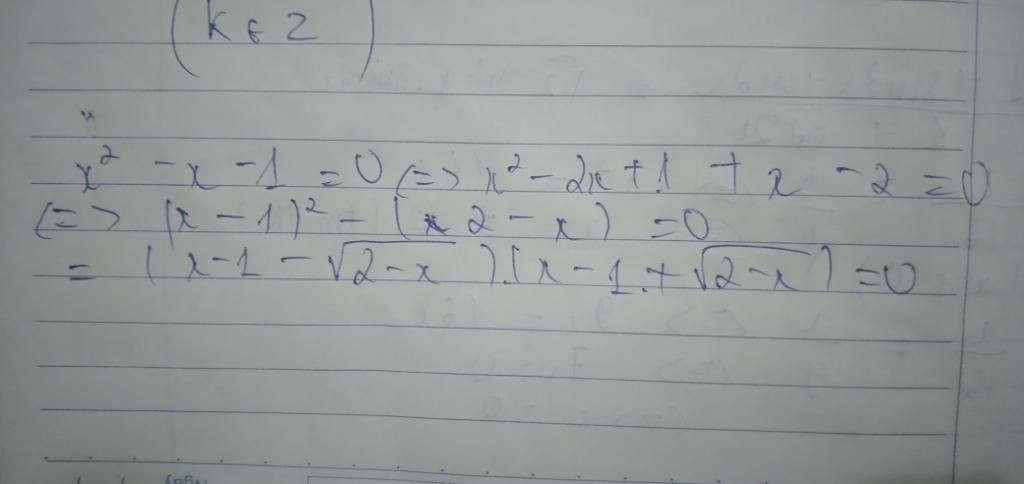 (k ∈ Z)
x² - x - 1 = 0 <=> x² - 2x + 1 + x - 2 = 0
<=> (x - 1)² - (2 - x) = 0
= (x - 1 - √(2 - x)).(x - 1 + √(2 - x)) = 0